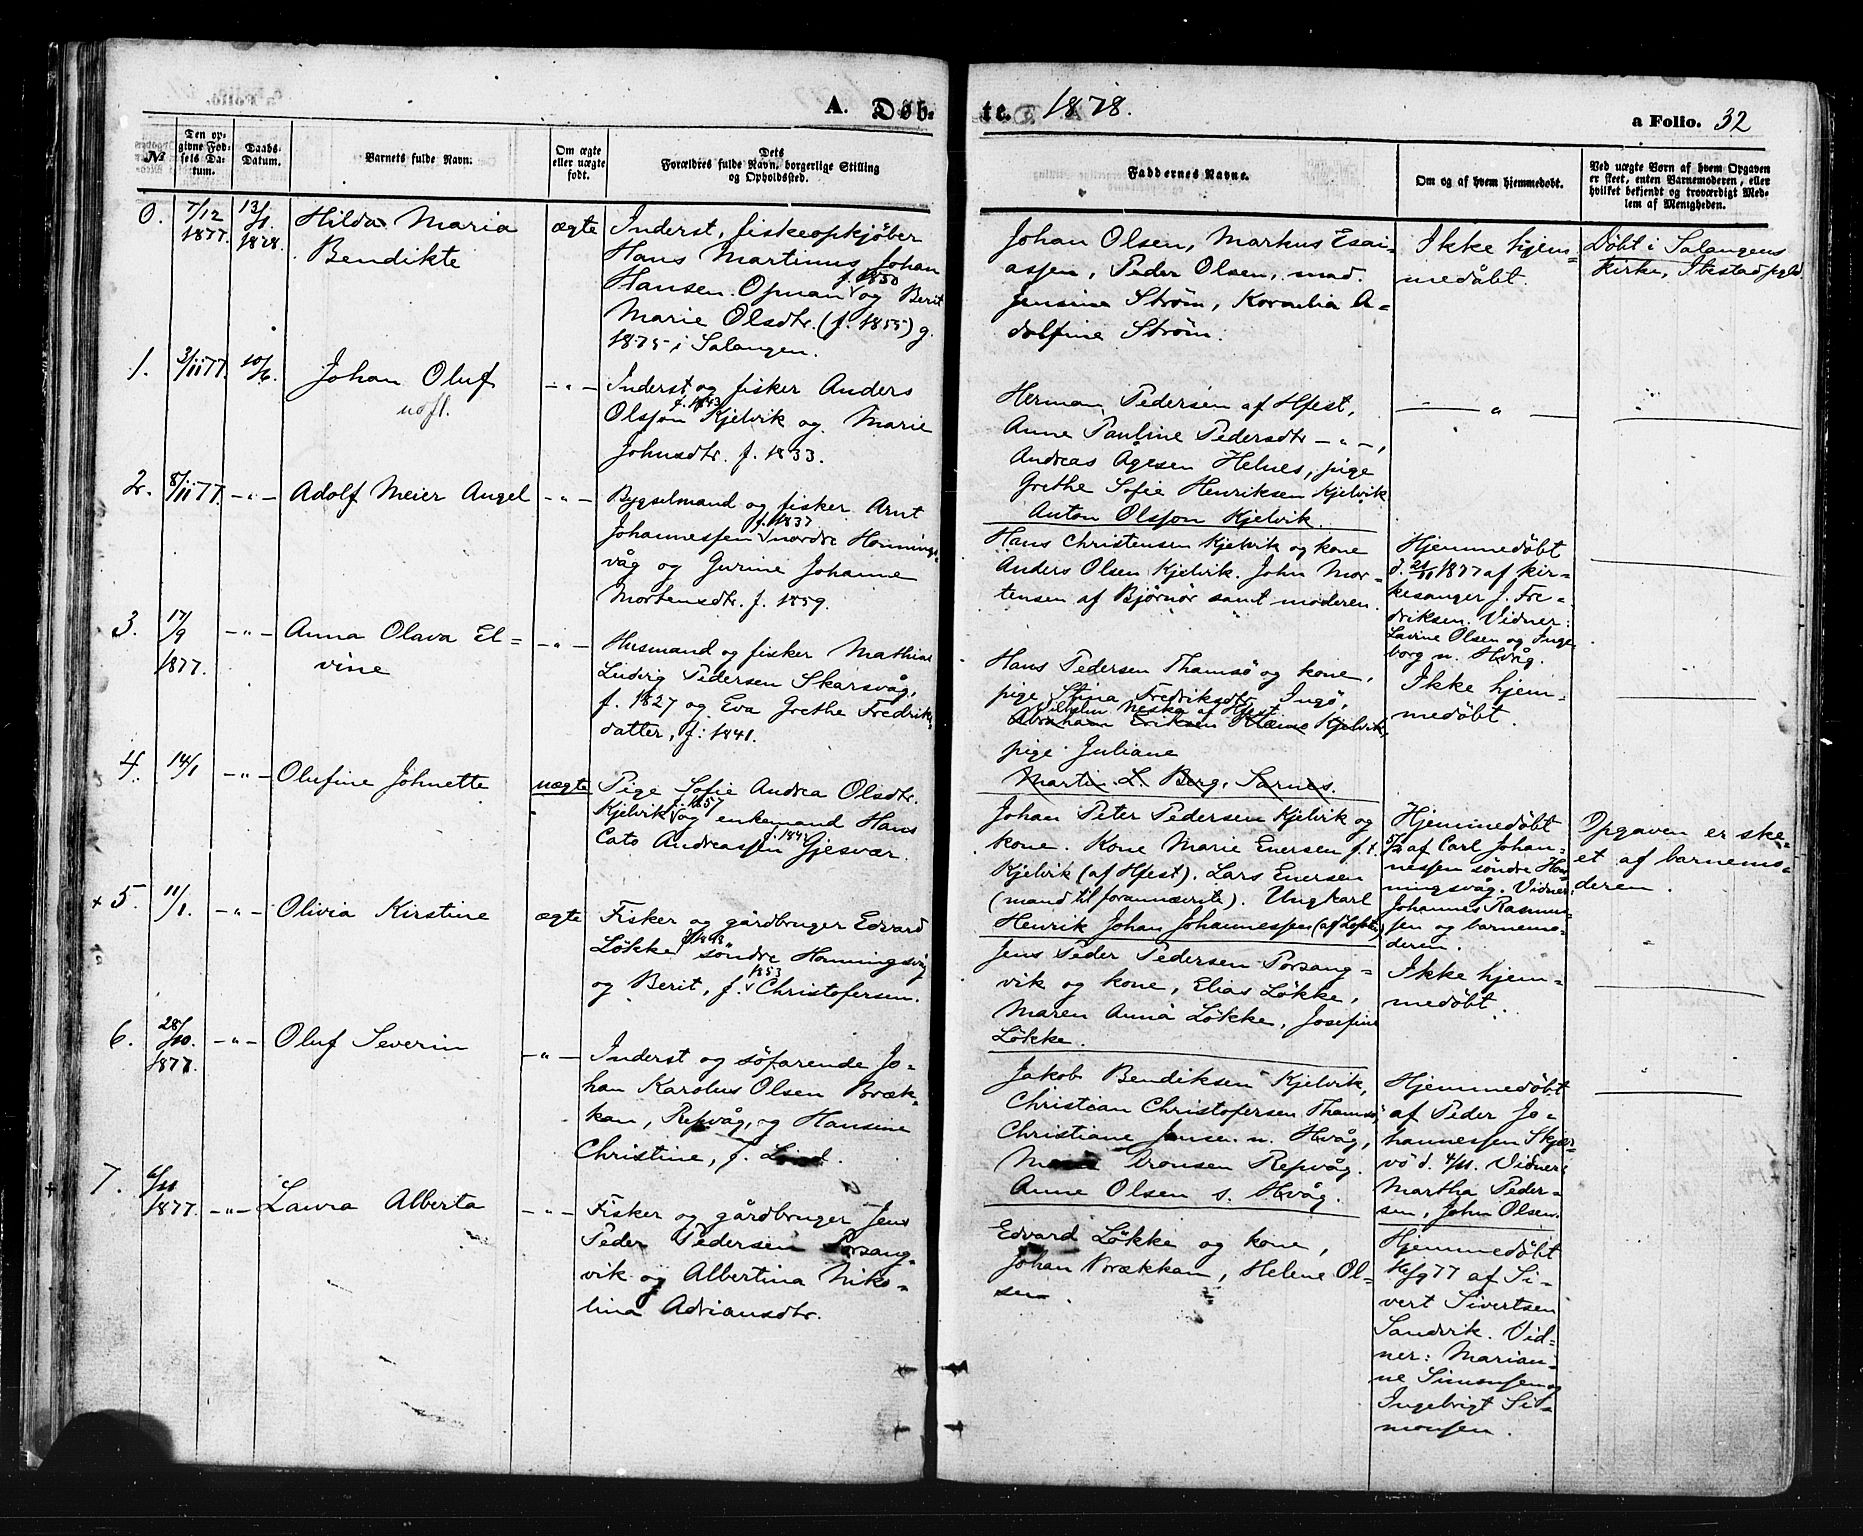 A. Døb-
te. 1878.
a Folio. 32
No
Den op-
givne Fød-
sels Da-
tum.
Daabs-
Datum.
Barnets fulde Navn.
Om ægte
eller uægte
født.
Dets
Forældres fulde Navn, borgerlige Stilling
og Opholdssted.
Faddernes Navne.
Om og af hvem hjemmedøbt.
Ved uægte Børn af hvem Opgaven
er skeet, enten Barnemoderen, eller
hvilket bekjendt og troværdigt Med-
lem af Menigheden.
0.
7/12
1877.
13/1.
1878.
Hilda Maria
Bendikte
ægte
Inderst, fiskeopkjøber
Hans Martinus Johan
Hansen Opman f. 1850 og Berit
Marie Olsdtr. (f. 1855) g.
1875 i Salangen.
Johan Olsen, Markus Esai-
assen, Peder Olsen, mad.
Jensine Strøm, Kornelia A-
dolfine Strøm.
Ikke hjem-
medøbt.
Døbt i Salangens
kirke, Ibestad pgld
1.
3/11 77.
10/6.
Johan Oluf
- " -
Inderst og fisker Anders
Olsson f. 1843 Kjelvik og Marie
Johnsdtr. f. 1833.
Herman Pedersen af Hfest,
Anne Pauline Pedersdtr - " -,
Andreas Ågesen Helnes, pige
Grethe Sofie Henriksen Kjelvik
Anton Olsson Kjelvik.
- " -
2.
8/11 77.
- " -
Adolf Meier Angel
- " -
Bygselmand og fisker Arnt
Johannessen f. 1837 nordre Honnings-
våg og Gurine Johanne
Mortensdtr. f. 1859.
Hans Christensen Kjelvik og kone
Anders Olsen Kjelvik. John Mor-
tensen af Bjørnør samt moderen.
Hjemmedøbt
d. 21/11 1877 af kir-
kesanger J. Fre-
driksen. Vidner:
Lavine Olsen og Inge-
borg n. Hvåg.
3.
17/9
1877.
- " -
Anna Olava El-
vine
- " -
Husmand og fisker Mathias
Ludvig Pedersen Skarsvåg,
f. 1827 og Eva Grethe Fredriks-
datter, f. 1841.
Hans Pedersen Thamsø og kone,
pige Stina Fredriksdtr Ingø,
pige Juliane
Martin L. Berg, Sarnes.
Ikke hjem-
medøbt.
4.
14/1
- " -
Olufine Johnette
uægte
Pige Sofie Andrea Olsdtr.
Kjelvik f. 1857 og enkemand Hans
Cato Andreassen Gjesvær.
Johan Peter Pedersen Kjelvik og
kone. Kone Marie Enersen f. t.
Kjelvik (af Hfest). Lars Enersen
(mand til forannævnte). Ungkarl
Henrik Johan Johannessen
Hjemmedøbt
5/2 af Carl Johan-
nessen søndre Hon-
ningsvåg. Vidner:
Johannes Rasmus-
sen og barnemo-
deren.
Opgaven er ske-
et af barnemo-
deren.
+ 5.
11/1.
- " -
Olivia Kirstine
ægte
Fisker og gårdbruger Edvard
Løkke søndre Honningsvåg
og Berit, f. 1853 Christofersen.
Jens Peder Pedersen Porsang-
vik og kone, Elias Løkke,
Maren Anna Løkke, Josefine
Løkke.
Ikke hjem-
medøbt.
6.
28/10.
1877.
- " -
Oluf Severin
- " -
Inderst og søfarende Jo-
han Karolus Olsen Bræk-
kan, Repvåg, og Hansine
Christine, f. Lind.
Jakob Bendiksen Kjelvik,
Christian Christofersen Thamsø,
Christiane Jensen n. Hvåg,
Repvåg.
Anne Olsen s. Hvåg.
Hjemmedøbt
af Peder Jo-
hannessen Skjer-
vø d. 4/11. Vidner:
Martha Peder-
sen, John Olsen.
7.
6/10
1877.
- " -
Laura Alberta
- " -
Fisker og gårdbruger Jens
Peder Pedersen Porsang-
vik og Albertina Niko-
lina Adriansdtr.
Edvard Løkke og kone,
Johan Brækkan, Helene Ol-
sen.
Hjemmedøbt
77 af Si-
vert Sivertsen
Sandvik. Vid-
ner: Marian-
ne Simonsen og
Ingebrigt Si-
monsen.